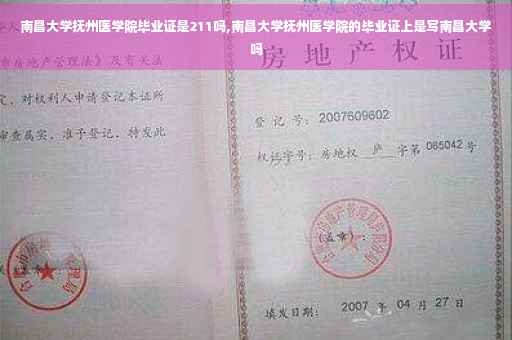 南昌大学抚州医学院毕业证是211吗,南昌大学抚州医学院的毕业证上是写南昌大学
吗
房地产权证
市房地产管理法》及有关法
定，对权利人申请登记本证所
审查属实，准予登记，特发此
登 记 号: 2007609602
权证字号: 房地权 庐 字第 085042 号
(盖章):
填发日期: 2007 年 04 月 27 日